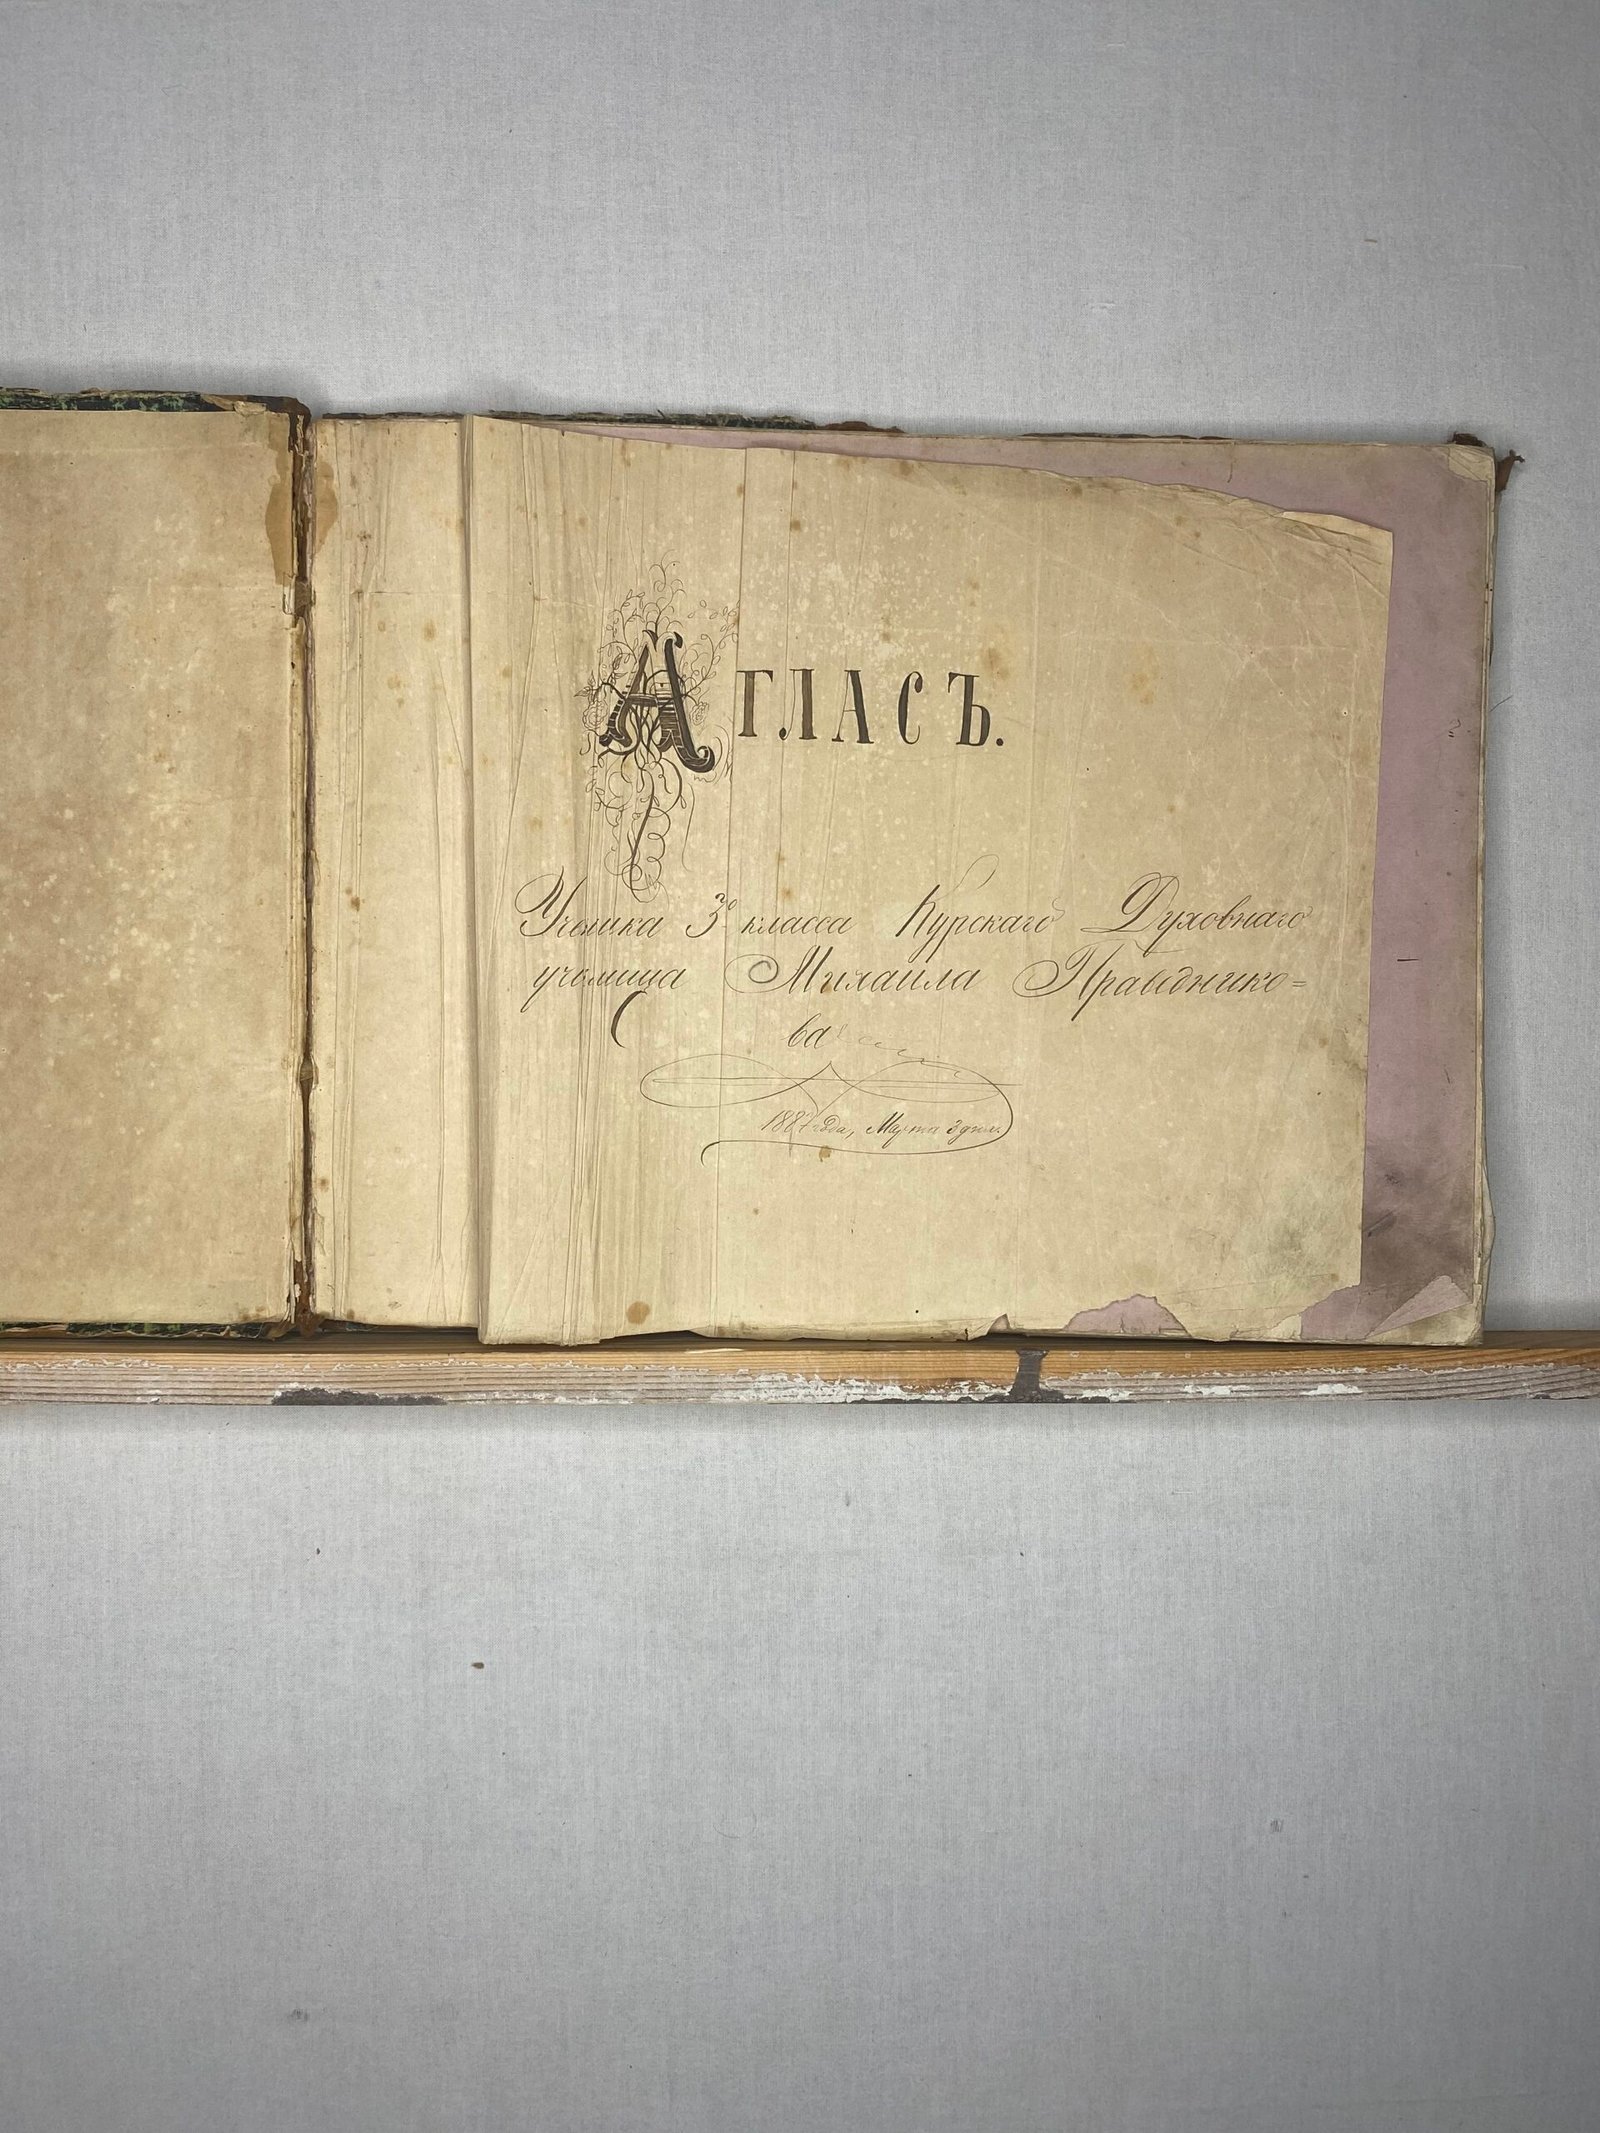 Атласъ.
Ученика 3го класса Курскаго Духовнаго
училища Михаила Праведнико=
ва
1887 года, Марта 3 дня.